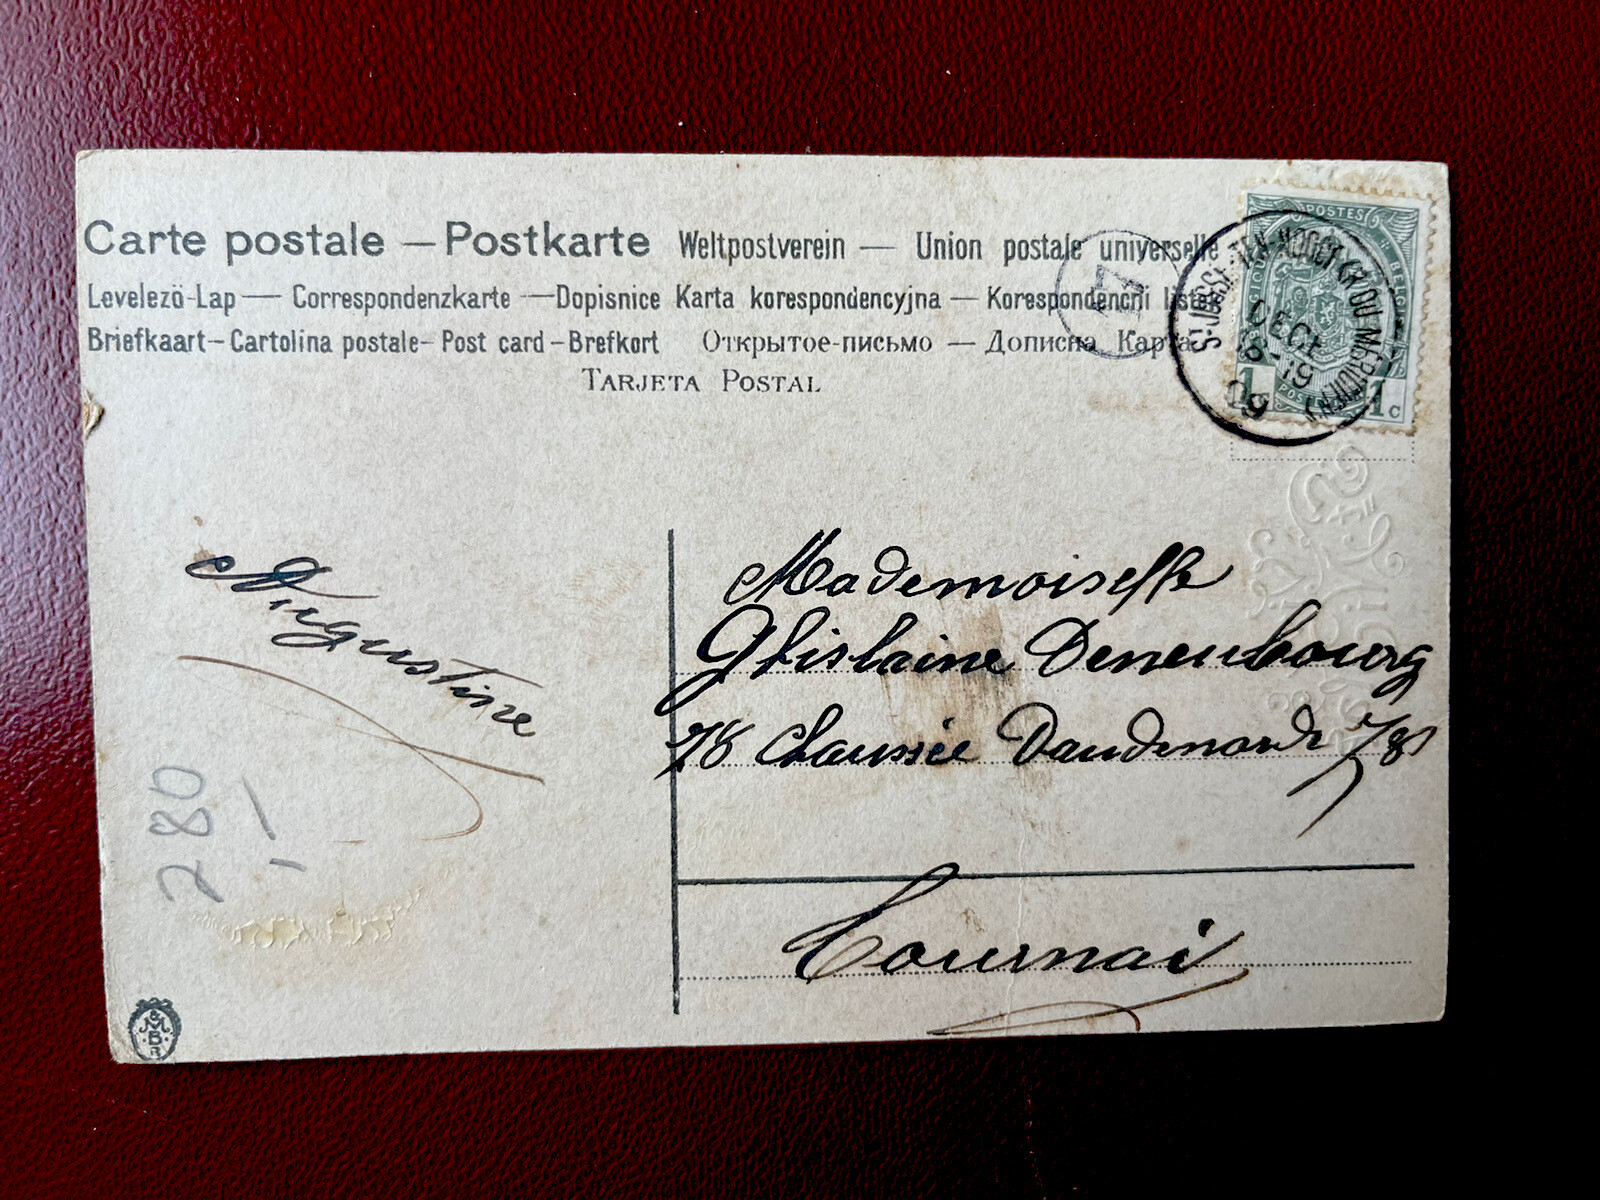 Carte postale — Postkarte Weltpostverein — Union postale universelle
Levelezö-Lap — Correspondenzkarte — Dopisnice Karta korespondencyjna — Korespondencni listek
Briefkaart – Cartolina postale – Post card – Brefkort Открытое-письмо — Дописна Карта
TARJETA POSTAL
POSTES
ST JOSSE-TEN-NOODE (R DU MERIDIEN)
DECE
19
09
1 1 c
Augustine
Mademoiselle
Ghislaine Denenbourg
78 Chaussée Daudenarde 78
Tournai
280
1-